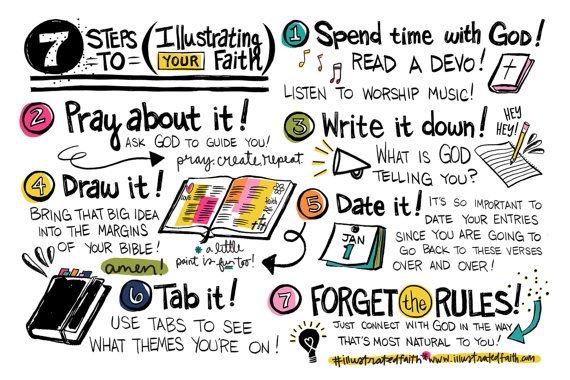 7 STEPS TO (Illustrating YOUR Faith)
1 Spend time with GOD!
READ A DEVO!
LISTEN TO WORSHIP MUSIC!
2 Pray about it!
ASK GOD TO GUIDE YOU!
pray. create. repeat.
3 Write it down!
HEY HEY!
WHAT IS GOD
TELLING YOU?
4 Draw it!
BRING THAT BIG IDEA
INTO THE MARGINS
OF YOUR BIBLE!
amen!
love
faith
* a little
paint is fun too!
5 Date it!
JAN
1
IT'S SO IMPORTANT TO
DATE YOUR ENTRIES
SINCE YOU ARE GOING TO
GO BACK TO THESE VERSES
OVER AND OVER!
6 Tab it!
USE TABS TO SEE
WHAT THEMES YOU'RE ON!
7 FORGET the RULES!
JUST CONNECT WITH GOD IN THE WAY
THAT'S MOST NATURAL TO YOU!
#illustratedfaith * www.illustratedfaith.com